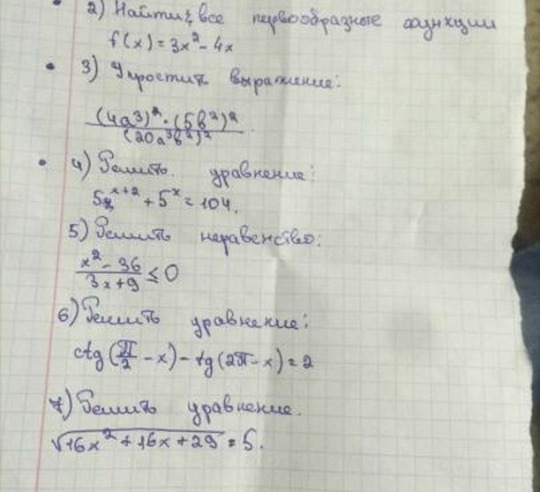 2) Найти все первообразные функции
f(x) = 3x² - 4x
3) Упростить выражение:
(4a³)² · (5b²)²
(20a³b²)²
4) Решить уравнение:
5^(x+2) + 5^x = 104.
5) Решить неравенство:
x² - 36
3x + 9
≤ 0
6) Решить уравнение:
ctg(π/2 - x) - tg(2π - x) = 2
7) Решить уравнение.
√16x² + 16x + 29 = 5.